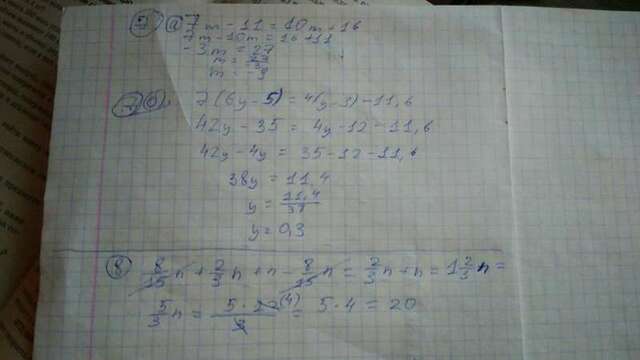 7 а) 7m - 11 = 10m + 16
7m - 10m = 16 + 11
-3m = 27
m = -9
7 б) 7(6y - 5) = 4(y - 3) - 11,6
42y - 35 = 4y - 12 - 11,6
42y - 4y = 35 - 12 - 11,6
38y = 11,4
y = 11,4/38
y = 0,3
8 8/15 n + 2/3 n + n - 8/15 n = 2/3 n + n = 1 2/3 n =
5/3 n = 5 · 12 (4)/3 = 5 · 4 = 20